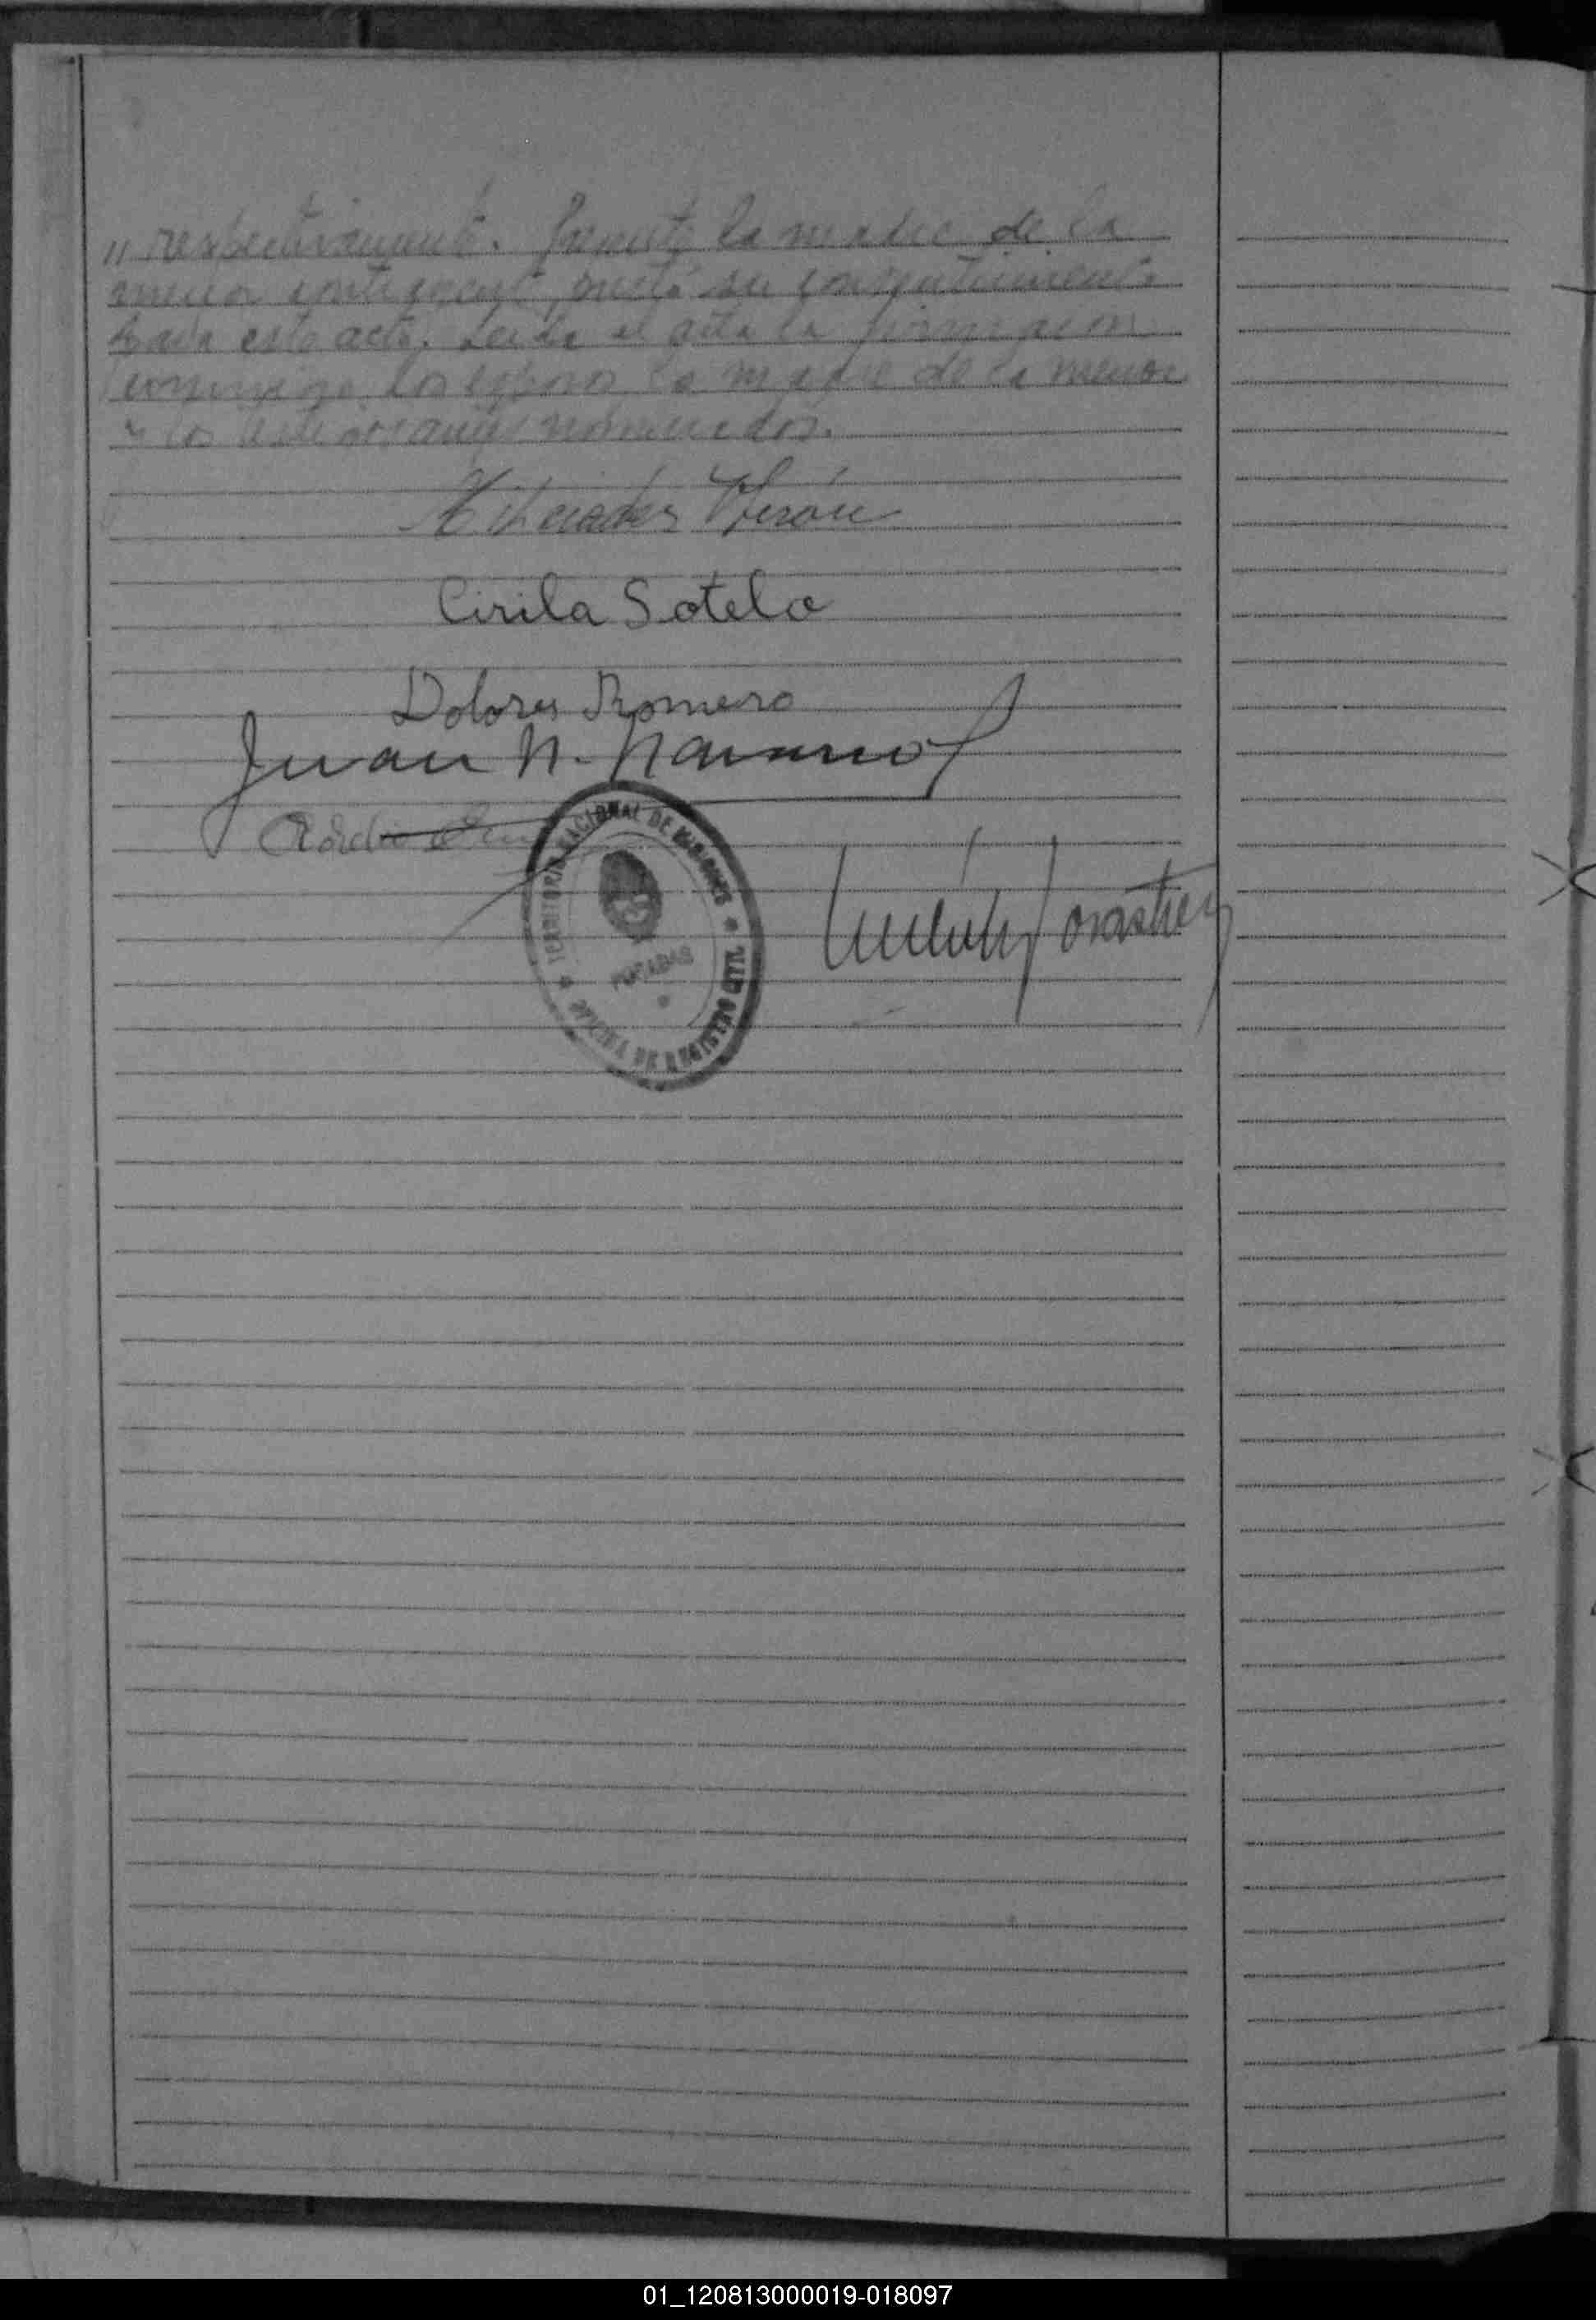 " respectivamente. Presente la madre de la
menor contrayente, prestó su consentimiento
para este acto. Leída el acta la firmaron
conmigo, los esposos la madre de la menor
y los testigos nominados.
Verón
Cirila Sotelo
Dolores Romero
Juan N. Navarro
TERRITORIO NACIONAL DE MISIONES
POSADAS
OFICINA DE REGISTRO CIVIL
01_120813000019-018097